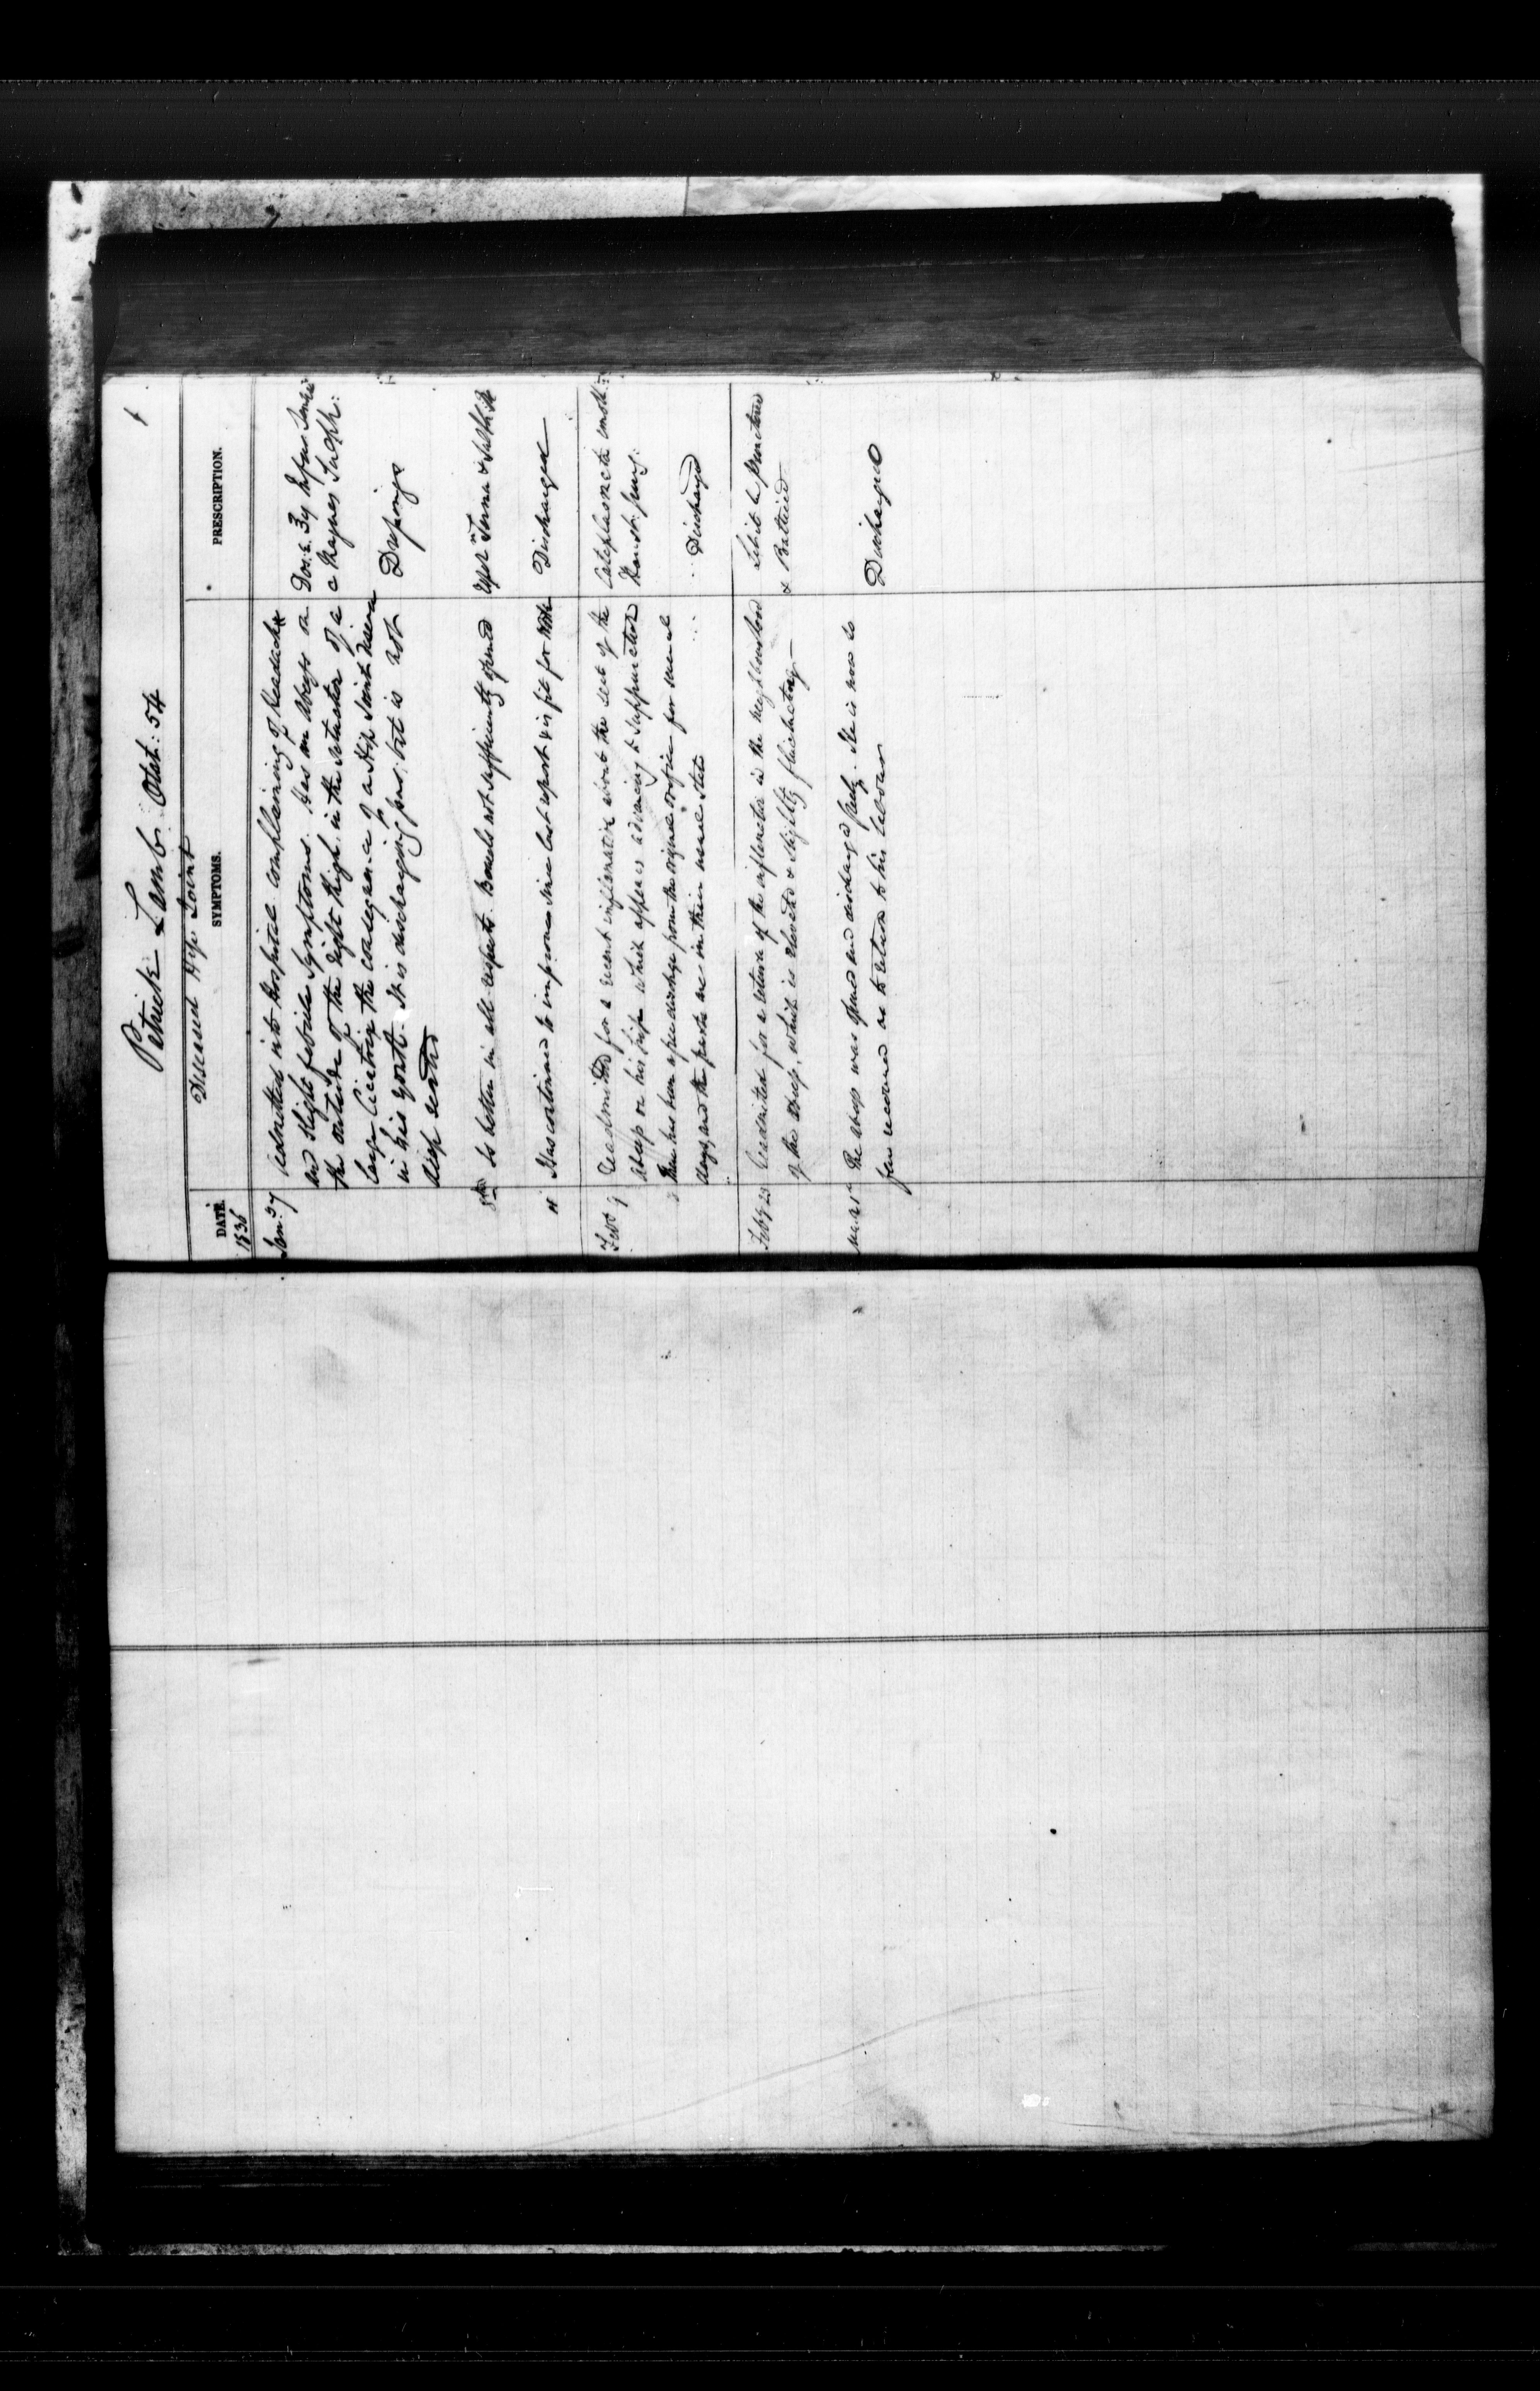 1
Patrick Lamb Aetat: 54
Diseased Hip Joint
DATE. SYMPTOMS. PRESCRIPTION.
1836
Jan: 7 Admitted into Hospital complaining of Headache
and slight febrile symptoms. Has an Abscess on
the outside of the right thigh in the situation of a
large Cicatrix the consequence of a Hip Joint disease
in his youth. It is discharging pus; but is not
deep seated
Infus: Sennae
c Magnes Sulph:
Dressings
8th Is better in all respects. Bowels not sufficiently opened
Senna & Salts
11 Has continued to improve since last report & is fit for work
Discharged
Feby 9 Readmitted for a recent inflammation about the seat of the
Abscess on his hip which appears advancing to suppuration
There has been a free discharge from the original orifice for several
days, and the parts are in their usual state
Cataplasma
Discharged
Feby 23 Readmitted for a return of the inflammation in the neighbourhood
of the abscess, which is elevated & slightly fluctuating
Let it be punctured
& Poulticed
Mar. 21st The abscess was opened and discharged freely. He is now so
far recovered as to return to his labour
Discharged